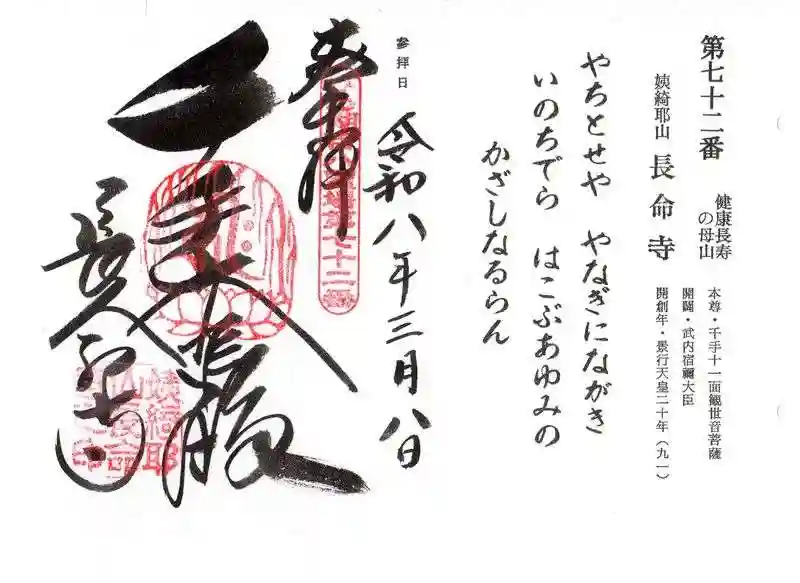 第七十二番
健康長寿
の母山
姨綺耶山 長命寺
本尊・千手十一面観世音菩薩
開闢・武内宿禰大臣
開創年・景行天皇二十年（九一）
やちとせや やなぎにながき
いのちでら はこぶあゆみの
かざしなるらん
参拝日
令和八年三月八日
奉拝
長命寺
姨綺耶